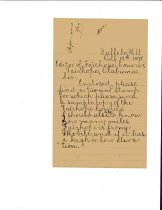 Buffalo N.Y.
Oct 19th 1898
Editor of Fairhope Courier
Fairhope, Alabama
Sir:
Enclosed please
find a two cent stamp
for which please send
a sample copy of the
Fairhope Courier.
Should also like to know
how many miles
Fairhope is from
Mobile and if it has
a high or low eleva-
tion.